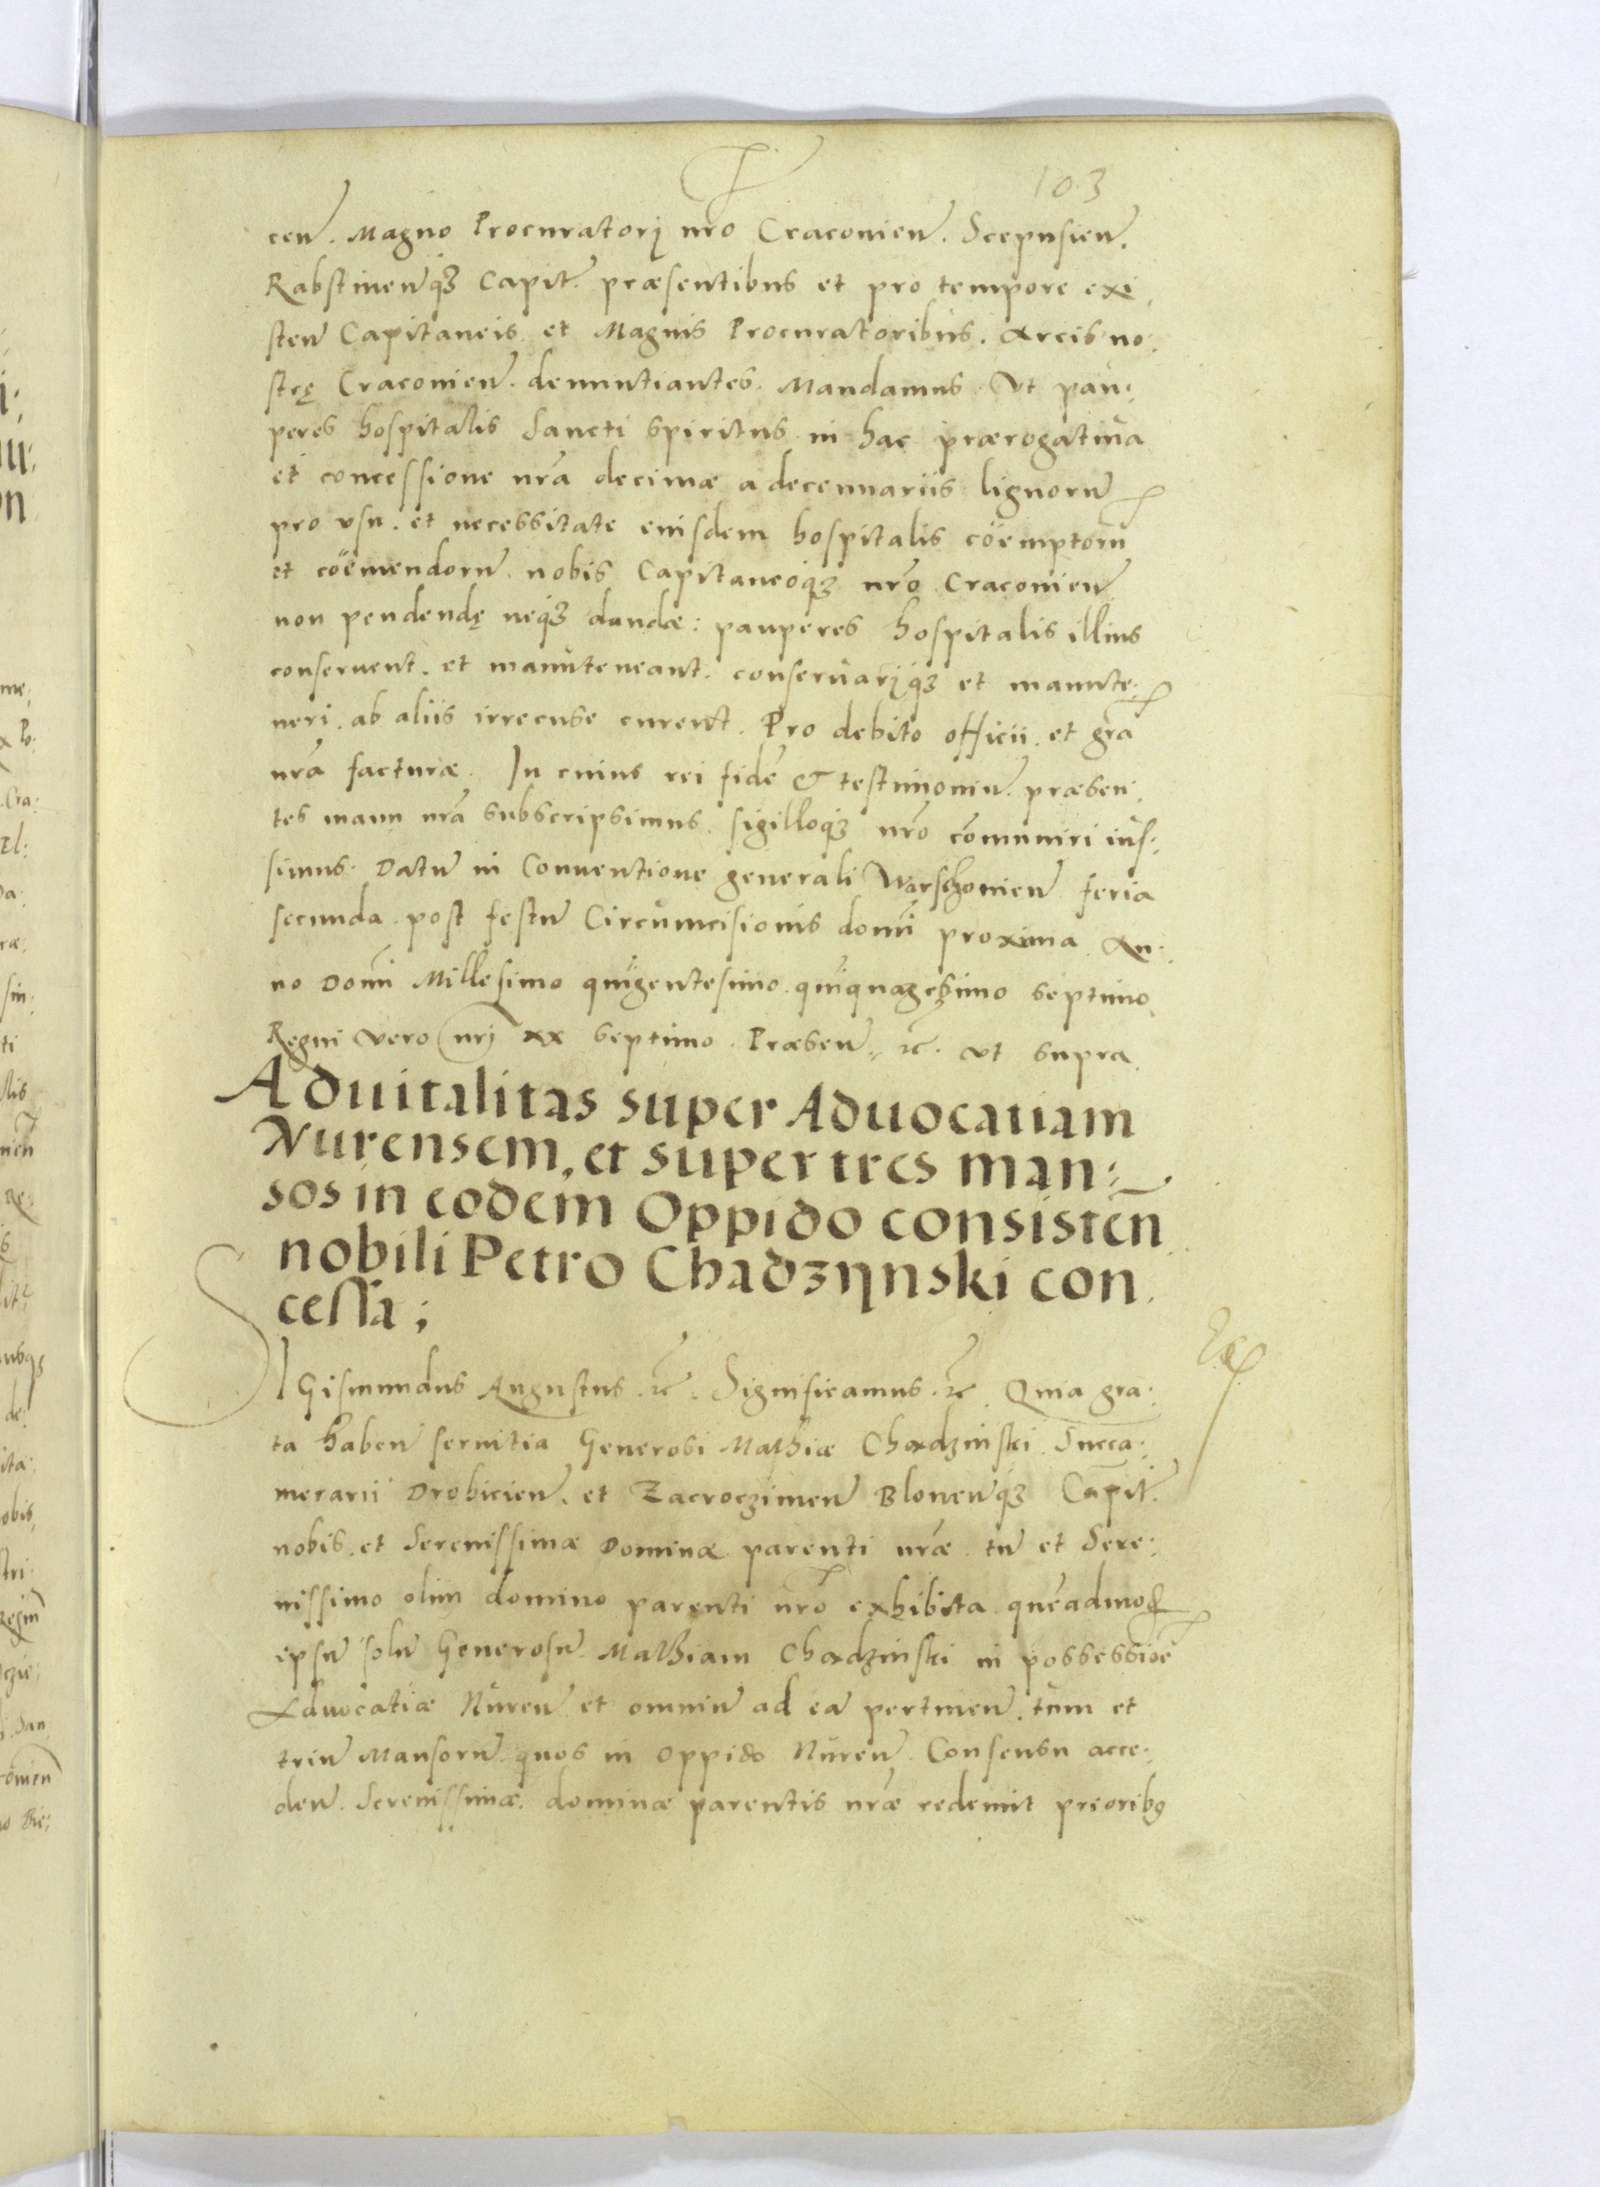 103
cen̄. Magno Procuratorj nr̄o Cracovien̄. Scepusien̄.
Rabstinen̄q̨ Capit̄. præsentibus et pro tempore exi
sten̄ Capitaneis et Magnis Procuratoribus. Arcis no:
strę Cracovien̄. denuntiantes. Mandamus. Ut pau:
peres hospitalis Sancti Spiritus in hac prærogativa
et concessione nr̄a decimæ a decennariis lignorū
pro usu. et necessitate eiusdem hospitalis cöemptorū
et cöemendorū. nobis Capitaneoq̨ nr̄o Cracovien̄
non pendendę neq̨ dandæ: pauperes hospitalis illius
conservent. et manuteneant. conservarijq̨ et manute:
neri. ab aliis irrecuse curent. Pro debito officii. et gr̄a
nr̄a facturæ. In cuius rei fidē & testimoniū. præsen
tes manu nr̄a subscripsimus. sigilloq̨ nr̄o cōmuniri ius:
simus. Datū in Conventione generali Warschovien̄ feria
secunda post festū Circumcisionis domī proxima An:
no Domī Millesimo quīgentesimo quīquagesimo septimo
Regni vero nrj xx septimo. Præsen̄. etc̄. ut supra
Advitalitas super Advocatiam
Nurensem, et super tres man:
sos in eodem Oppido consisten̄
nobili Petro Chadzynski con
cessa;
SIGismundus Augustus. etc̄. Significamus. etc̄ Quia gra:
ta haben̄ servitia Generosi Mathiæ Chadzinski Succa:
merarii Drohicien̄. et Zacroczimen̄ Blonen̄q̨ Capit̄.
nobis. et Serenissimæ Dominæ parenti nr̄æ tū et Sere:
nissimo olim domino parenti nr̄o exhibita quēadmod̄
ipsū solū Generosū Mathiam Chadzinski in possessiōe
Advocatiæ Nuren̄ et omniū ad eā pertinen̄. tum et
triū Mansorū quos in Oppido Nuren̄. Consensu acce:
den̄. Serenissimæ dominæ parentis nr̄æ redemit prioribꝰ